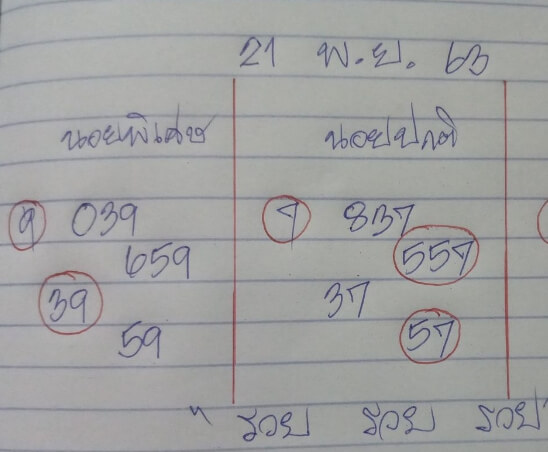 21 พ.ย. 63
นอยพิเศษ นอยปกติ
9 039 7 837
659 557
39 37
59 57
" รวย รวย รวย